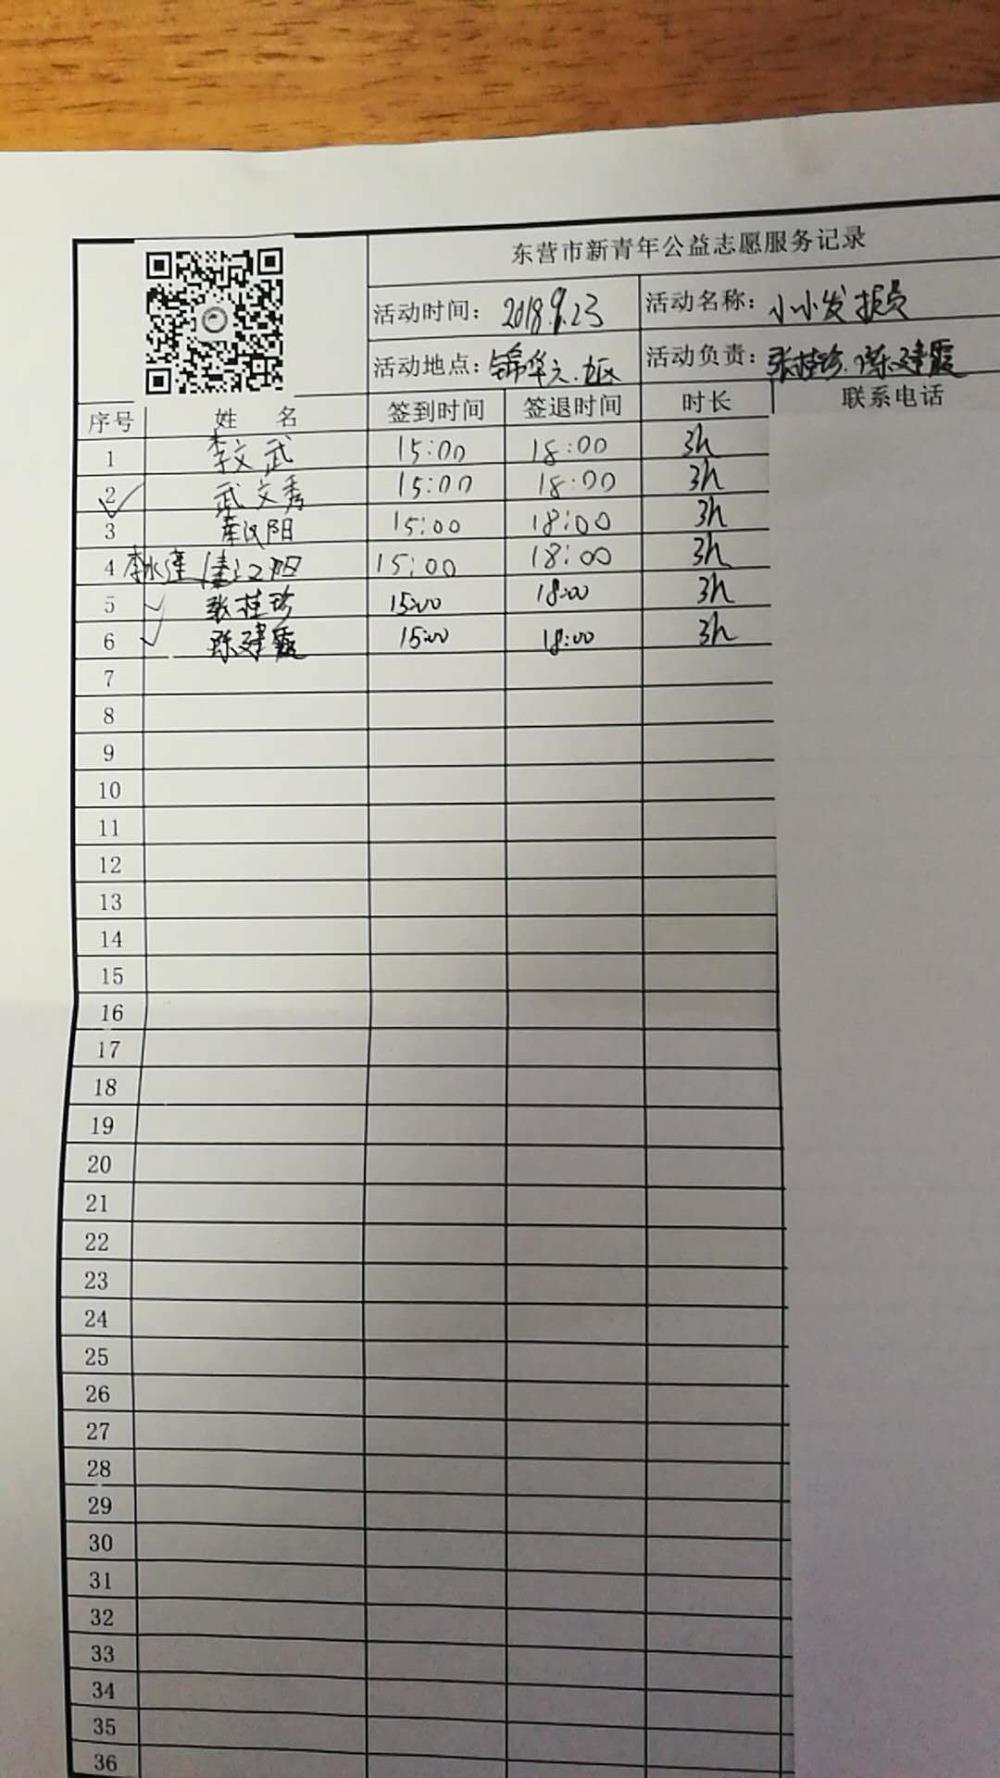 东营市新青年公益志愿服务记录
活动时间：2018.9.23 活动名称：小小发报员
活动地点：锦华 活动负责：张桂珍.陈建霞
序号 姓 名 签到时间 签退时间 时长 联系电话
1 李文武 15:00 18:00 3h
2 武文秀 15:00 18:00 3h
3 汉阳 15:00 18:00 3h
4 15:00 18:00 3h
5 张桂珍 15:00 18:00 3h
6 陈建霞 15:00 18:00 3h
7
8
9
10
11
12
13
14
15
16
17
18
19
20
21
22
23
24
25
26
27
28
29
30
31
32
33
34
35
36